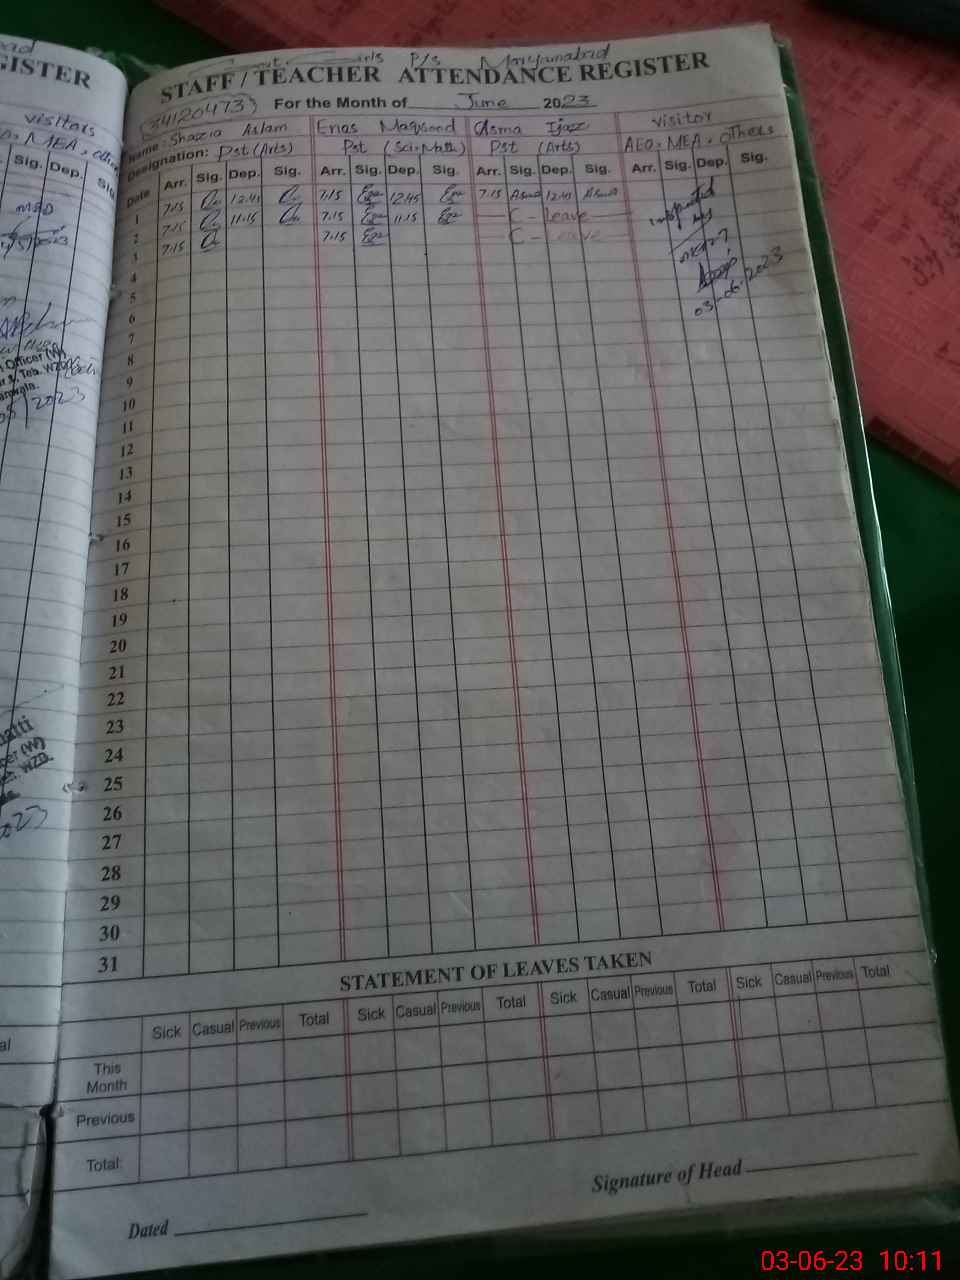 GISTER
visitors
MEA, othe
Sig. Dep. Si
Officer (W)
2023
Govt Girls P/S Mriyamabad
STAFF / TEACHER ATTENDANCE REGISTER
34120473
For the Month of June 2023
Name: Shazia Aslam Erias Maqsood Asma Ijaz visitor
Designation: Pst (Arts) Pst (Sci-Math) Pst (Arts) AEO, MEA, others
Date Arr. Sig. Dep. Sig. Arr. Sig. Dep. Sig. Arr. Sig. Dep. Sig. Arr. Sig. Dep. Sig.
1 7:15 12:45 7:15 12:45 7:15 Asma 12:45 Asma
2 7:15 11:15 7:15 11:15 C - Leave
3 7:15 7:15 C - Leave
4
5
6
7
8
9
10
11
12
13
14
15
16
17
18
19
20
21
22
23
24
25
26
27
28
29
30
31
Inspected
03-06-2023
STATEMENT OF LEAVES TAKEN
Sick Casual Previous Total Sick Casual Previous Total Sick Casual Previous Total Sick Casual Previous Total
This
Month
Previous
Total:
Signature of Head
Dated
03-06-23 10:11